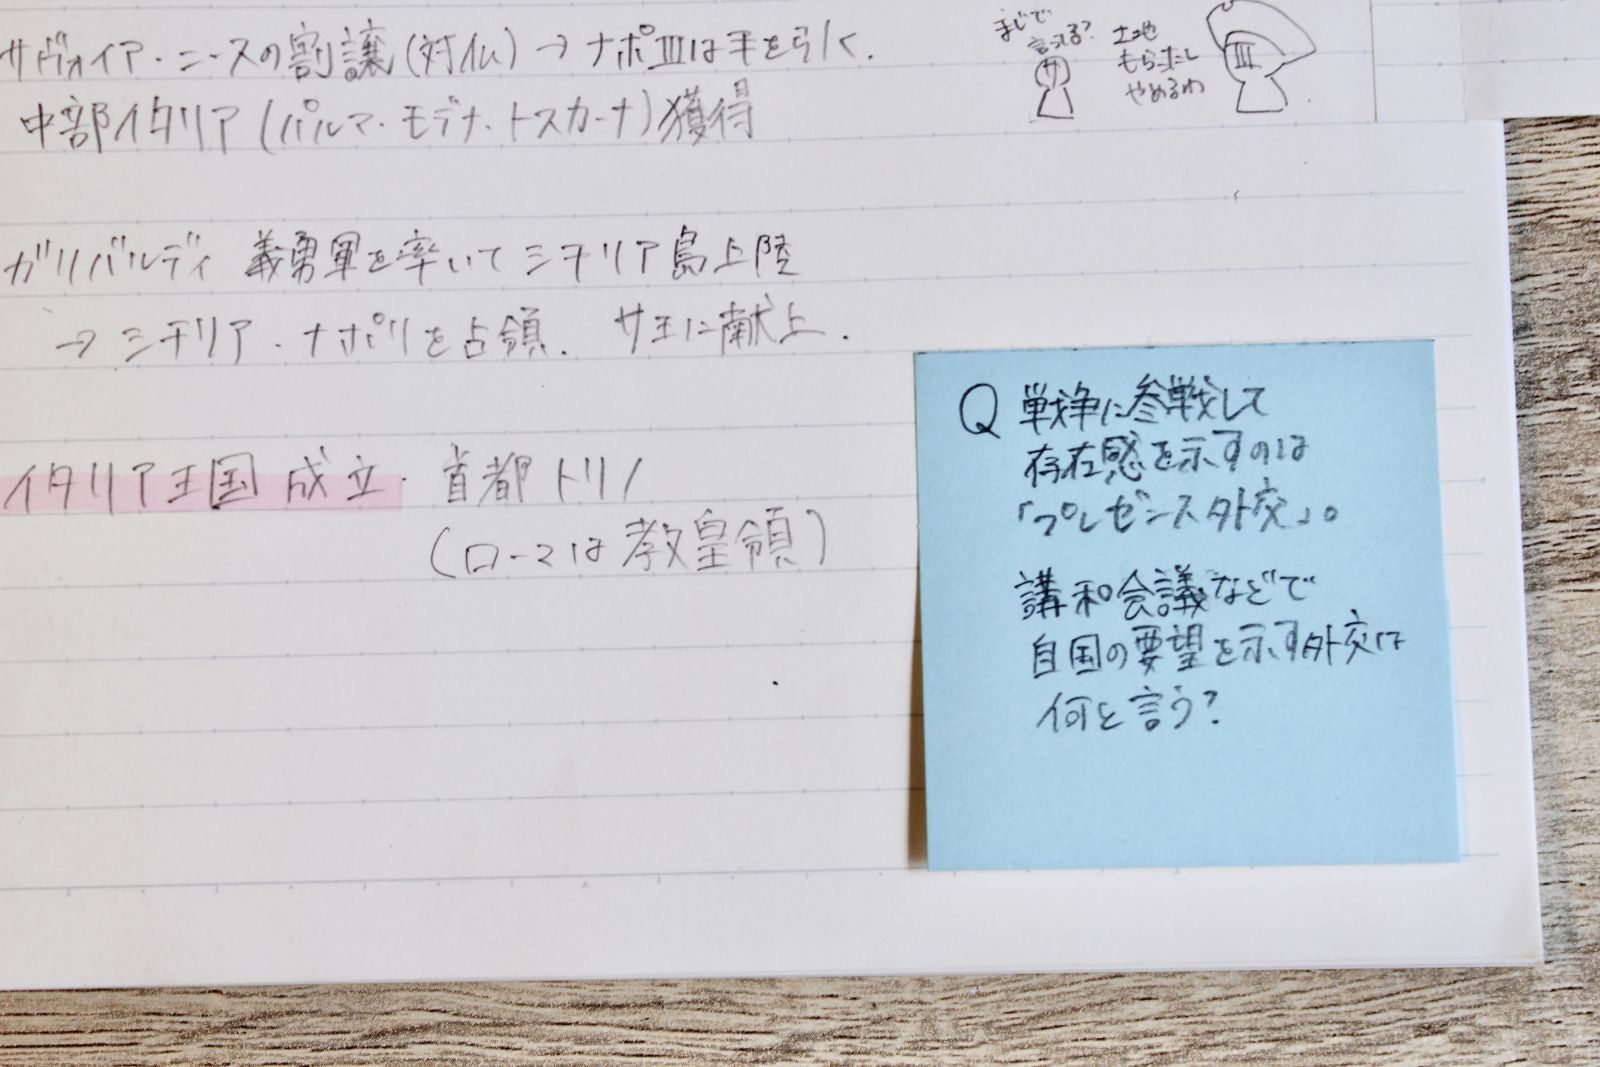 サヴォイア・ニースの割譲(対仏)→ナポⅢは手を引く.
中部イタリア(パルマ・モデナ・トスカーナ)獲得
まじで
言ってる?
サ
土地
もらったし
やめるわ
Ⅲ
ガリバルディ 義勇軍を率いてシチリア島上陸
→シチリア・ナポリを占領. サ王に献上.
イタリア王国 成立. 首都トリノ
(ローマは教皇領)
Q 戦争に参戦して
存在感を示すのは
「プレゼンス外交」。
講和会議などで
自国の要望を示す外交は
何と言う?